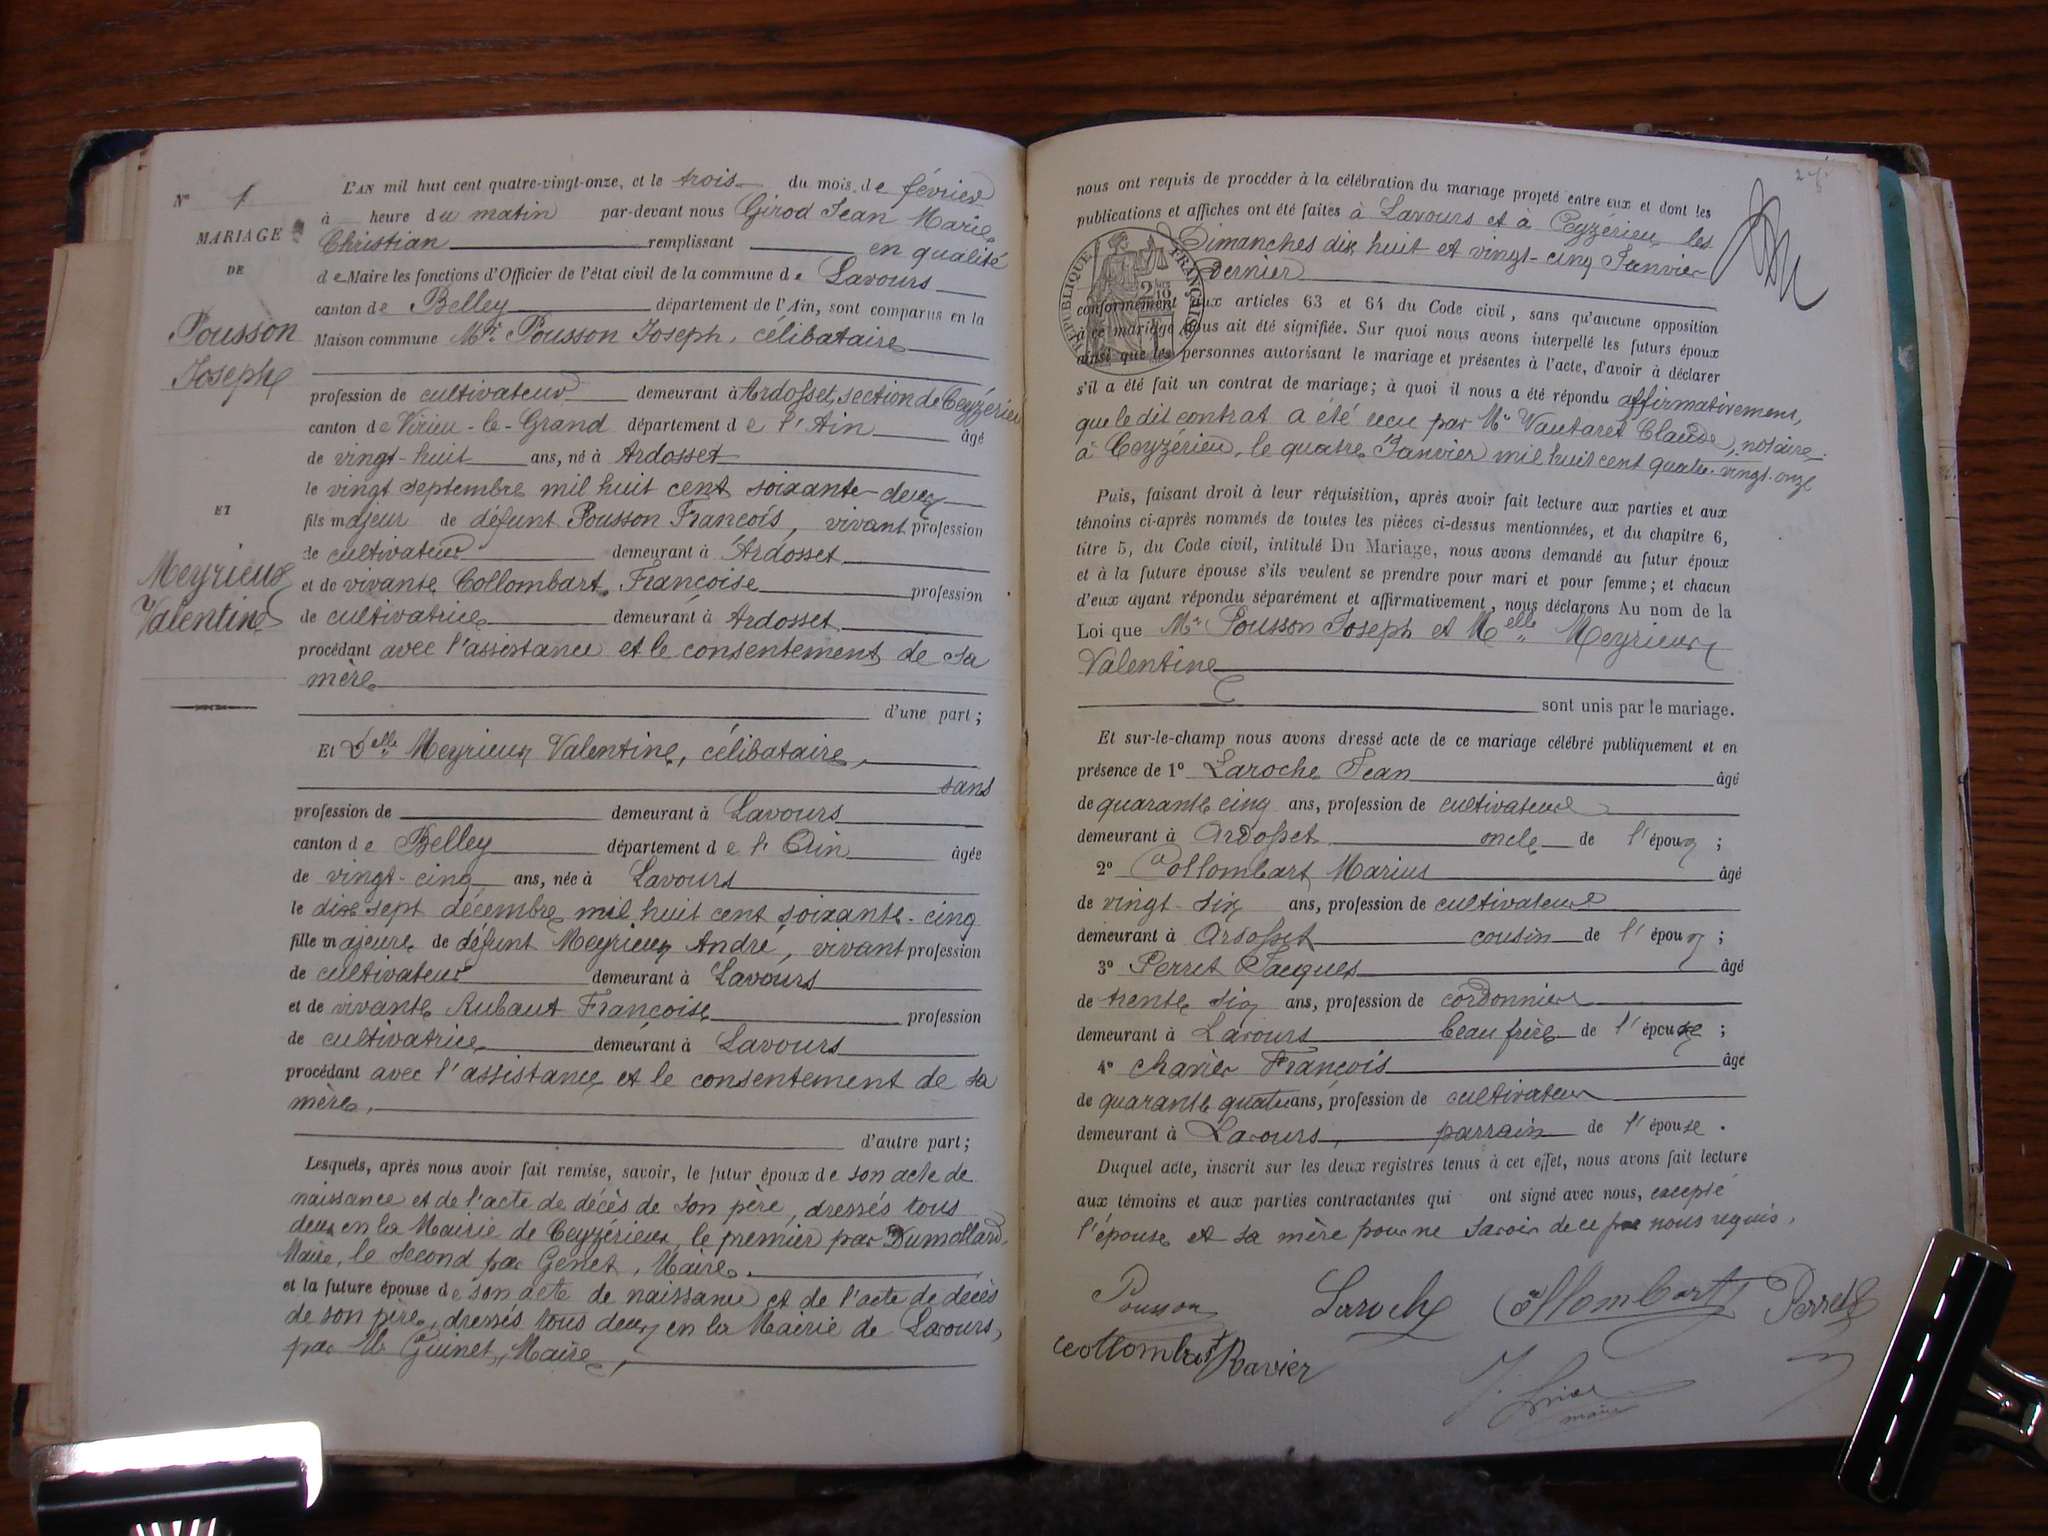 N° 1
MARIAGE
DE
Pousson
Joseph
ET
Meyrieux
Valentine
L'AN mil huit cent quatre-vingt-onze, et le trois du mois de février
à heure du matin par-devant nous Girod Jean Marie
Christian remplissant en qualité
de Maire les fonctions d'Officier de l'état civil de la commune de Lavours
canton de Belley département de l'Ain, sont comparus en la
Maison commune Mr. Pousson Joseph, célibataire
profession de cultivateur demeurant à Ardosset, section de Ceyzérieu
canton de Virieu-le-Grand département de l'Ain âgé
de vingt-huit ans, né à Ardosset
le vingt septembre mil huit cent soixante-deux
fils majeur de défunt Pousson François, vivant profession
de cultivateur demeurant à Ardosset
et de vivante Collombart Françoise profession
de cultivatrice demeurant à Ardosset
procédant avec l'assistance et le consentement de sa
mère
d'une part;
Et Delle Meyrieux Valentine, célibataire,
sans
profession de demeurant à Lavours
canton de Belley département de l'Ain âgée
de vingt-cinq ans, née à Lavours
le dix sept décembre mil huit cent soixante-cinq
fille majeure de défunt Meyrieux André, vivant profession
de cultivateur demeurant à Lavours
et de vivante Rubaut Françoise profession
de cultivatrice demeurant à Lavours
procédant avec l'assistance et le consentement de sa
mère,
d'autre part;
Lesquels, après nous avoir fait remise, savoir, le futur époux de son acte de
naissance et de l'acte de décès de son père, dressés tous
deux en la Mairie de Ceyzérieu, le premier par Dumollard,
Maire, le second par Genet, Maire.
et la future épouse de son acte de naissance et de l'acte de décès
de son père, dressés tous deux en la Mairie de Lavours,
par Mr Guinet, Maire,
nous ont requis de procéder à la célébration du mariage projeté entre eux et dont les
publications et affiches ont été faites à Lavours et à Ceyzérieu les
Dimanches dix huit et vingt-cinq Janvier
dernier
RÉPUBLIQUE FRANÇAISE
conformément aux articles 63 et 64 du Code civil, sans qu'aucune opposition
à ce mariage nous ait été signifiée. Sur quoi nous avons interpellé les futurs époux
ainsi que les personnes autorisant le mariage et présentes à l'acte, d'avoir à déclarer
s'il a été fait un contrat de mariage; à quoi il nous a été répondu affirmativement,
que le dit contrat a été reçu par Me Vautaret Claude, notaire
à Ceyzérieu, le quatre Janvier mil huit cent quatre-vingt-onze
Puis, faisant droit à leur réquisition, après avoir fait lecture aux parties et aux
témoins ci-après nommés de toutes les pièces ci-dessus mentionnées, et du chapitre 6,
titre 5, du Code civil, intitulé Du Mariage, nous avons demandé au futur époux
et à la future épouse s'ils veulent se prendre pour mari et pour femme; et chacun
d'eux ayant répondu séparément et affirmativement, nous déclarons Au nom de la
Loi que Mr Pousson Joseph et Melle Meyrieux
Valentine
sont unis par le mariage.
Et sur-le-champ nous avons dressé acte de ce mariage célébré publiquement et en
présence de 1° Laroche Jean âgé
de quarante cinq ans, profession de cultivateur
demeurant à Ardosset oncle de l'époux;
2° Collombart Marius âgé
de vingt-six ans, profession de cultivateur
demeurant à Ardosset cousin de l'époux;
3° Perret Jacques âgé
de trente six ans, profession de cordonnier
demeurant à Lavours beau frère de l'épouse;
4° Chavier François âgé
de quarante quatre ans, profession de cultivateur
demeurant à Lavours, parrain de l'épouse.
Duquel acte, inscrit sur les deux registres tenus à cet effet, nous avons fait lecture
aux témoins et aux parties contractantes qui ont signé avec nous, excepté
l'épouse et sa mère pour ne savoir de ce par nous requis,
Pousson Laroche Collombart Perret
Collombart
maire